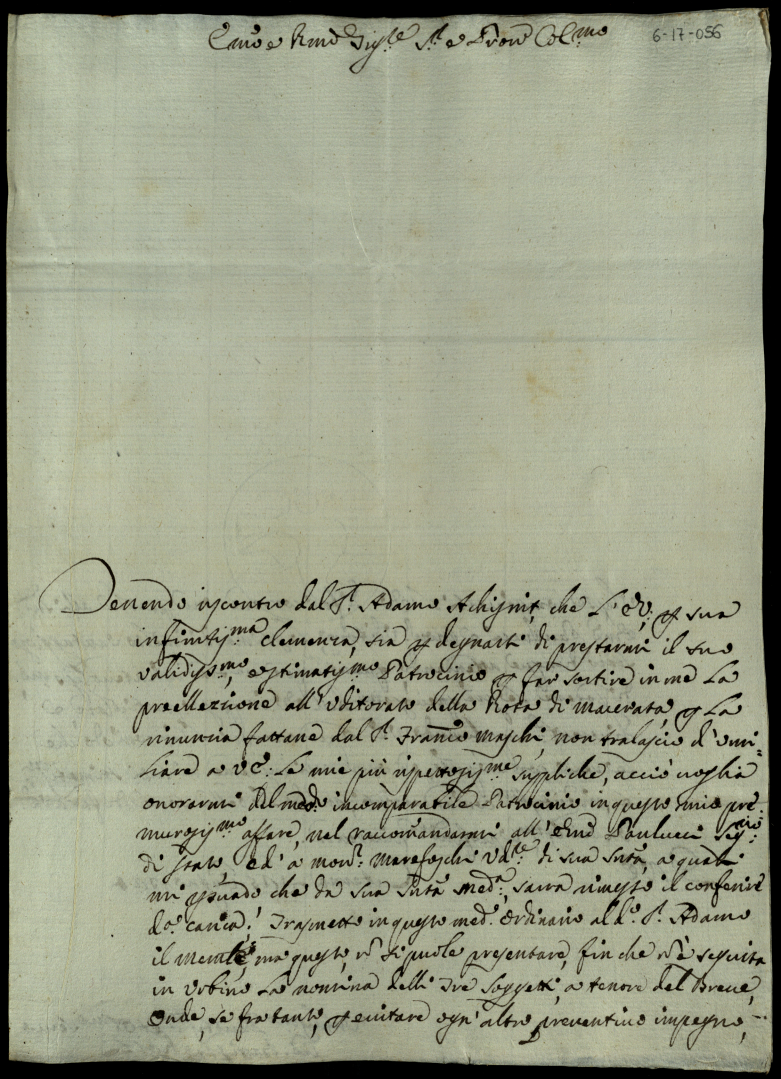 Emo e Rmo Sig.re S.r e Pron Col.mo
6-17-056
Tenendo riscontro dal S.r Adamo che L'E.V. p sua
infinitiss.ma clemenza, sia p degnarsi di prestarmi il suo
validiss.mo, e stimatiss.mo Patrocinio p far sortire in me La
preellezione all'Uditorato della Rota di Macerata, p La
rinuncia fattane dal S.r Franc.o Maschi, non tralascio d'umi-
liare a V.E. Le mie più rispettosiss.me suppliche, acciò voglia
onorarmi del med.o incomparabile Patrocinio in questo mio pre-
murosiss.mo affare, nel raccomandarmi all'Emo Paulucci Seg.rio
di Stato, ed' à mon.r Marefoschi Ud.re di Sua Sntà, a quali
mi che da Sua Sntà med.a, sarà rimesso il conferire
d.a carica. Trasmetto in questo med.o Ordinario al d.o S.r Adamo
il Memle, mà questo, n si puole presentare, fin che n è seguita
in Urbino La nomina delli Tre Soggetti, a tenore del Breve,
Onde, se fra tanto, p evitare ogn'altro preventivo impegno,